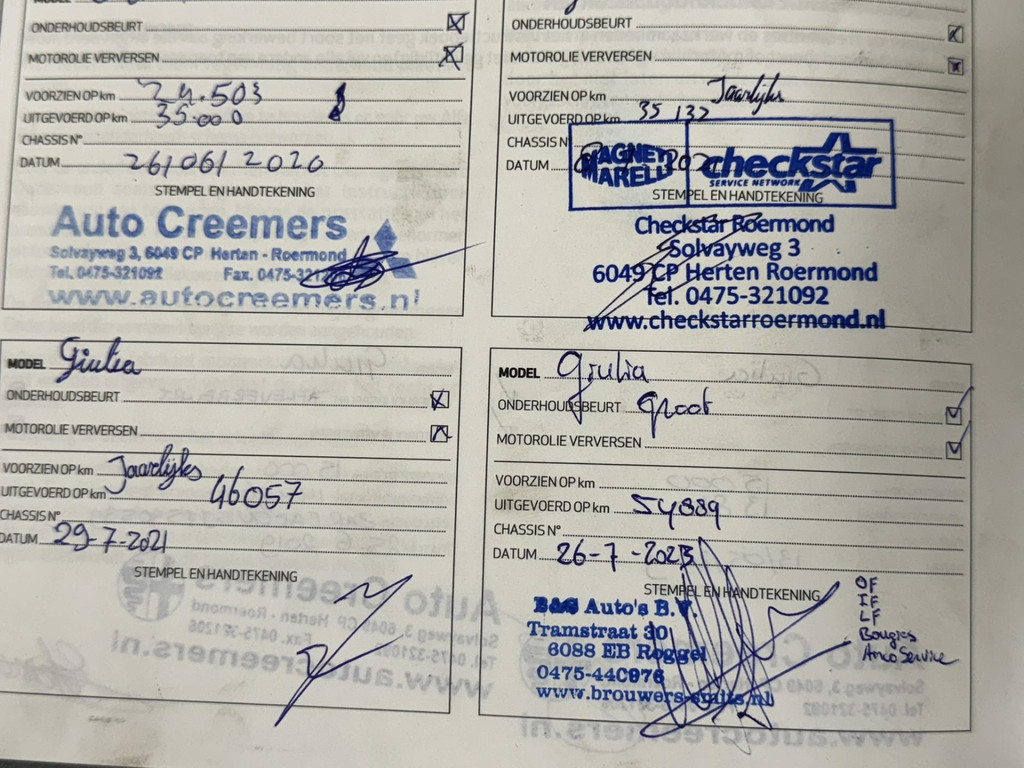 MODEL
ONDERHOUDSBEURT
MOTOROLIE VERVERSEN
VOORZIEN OP km 24.503
UITGEVOERD OP km 35.000
CHASSIS N°
DATUM 26/06/2020
STEMPEL EN HANDTEKENING
Auto Creemers
Solvayweg 3, 6049 CP Herten - Roermond
Tel. 0475-321092 Fax. 0475-
www.autocreemers.nl
ONDERHOUDSBEURT
MOTOROLIE VERVERSEN
VOORZIEN OP km Jaarlijks
UITGEVOERD OP km 35 132
CHASSIS N°
DATUM
MAGNETI MARELLI
checkstar
SERVICE NETWORK
STEMPEL EN HANDTEKENING
Checkstar Roermond
Solvayweg 3
6049 CP Herten Roermond
Tel. 0475-321092
www.checkstarroermond.nl
MODEL Giulia
ONDERHOUDSBEURT
MOTOROLIE VERVERSEN
VOORZIEN OP km Jaarlijks
UITGEVOERD OP km 46057
CHASSIS N°
DATUM 29-7-2021
STEMPEL EN HANDTEKENING
MODEL Giulia
ONDERHOUDSBEURT Groot
MOTOROLIE VERVERSEN
VOORZIEN OP km
UITGEVOERD OP km 54889
CHASSIS N°
DATUM 26-7-2023
STEMPEL EN HANDTEKENING
B&S Auto's B.V.
Tramstraat 30
6088 EB Roggel
0475-440976
www.brouwers-smits.nl
OF
IF
LF
Bougies
Airco Service